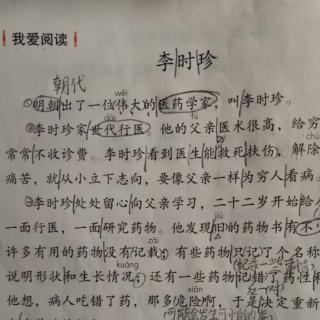 我爱阅读
李时珍
朝代
wěi
①明朝出了一位伟大的医药学家，叫李时珍。
dài
②李时珍家世代行医。他的父亲医术很高，给穷
fú
常常不收诊费。李时珍看到医生能救死扶伤，解除
痛苦，就从小立下志向，要像父亲一样为穷人看病。
③李时珍处处留心向父亲学习，二十二岁开始给
jiù
一面行医，一面研究药物。他发现旧的药物书有不
zǎi
许多有用的药物没有记载；有些药物只记了个名称
kuàng
说明形状和生长情况；还有一些药物记错了药性和
xiǎn
他想，病人吃错了药，那多危险啊，于是决定重新